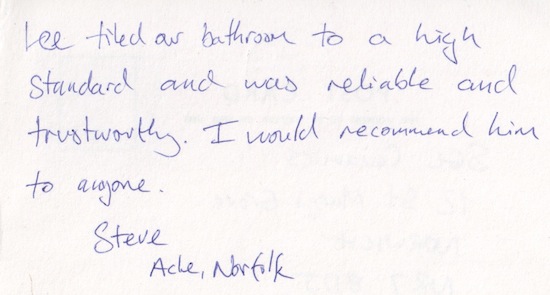 Lee tiled our bathroom to a high
standard and was reliable and
trustworthy. I would recommend him
to anyone.
Steve
Acle, Norfolk